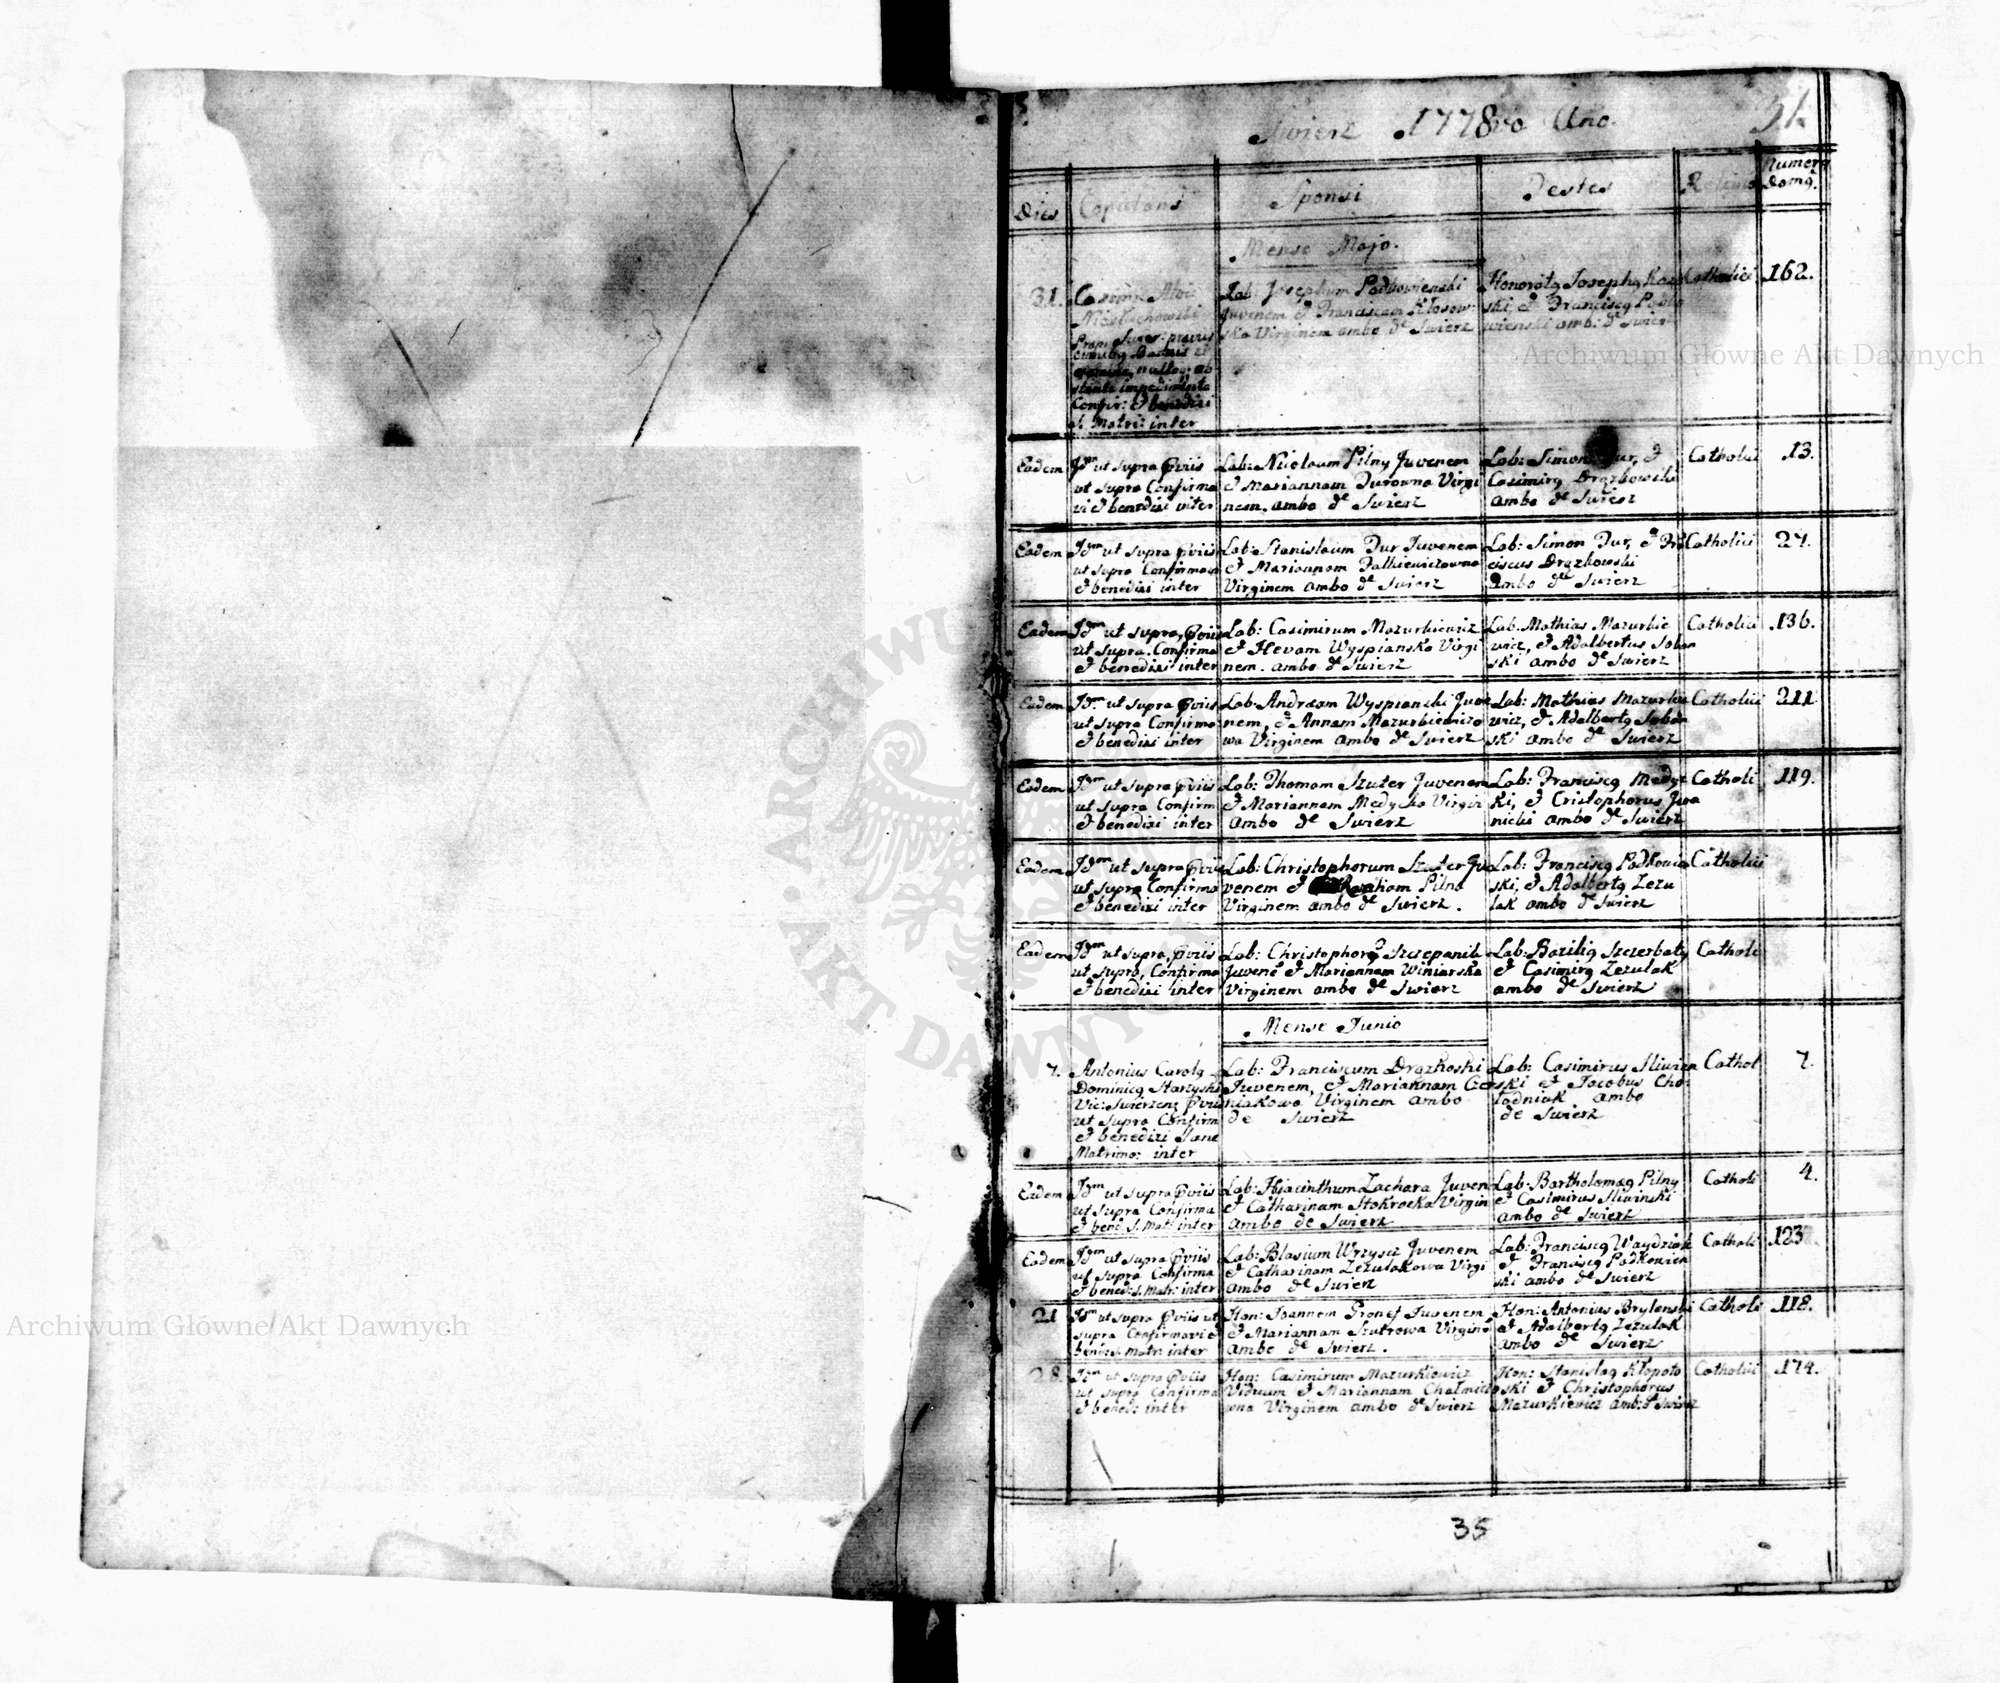 Swierz 1778vo Ano. 51.
Dies Copulans Sponsi Testes Religio Numerq domq.
Mense Majo.
31. Casimir Alois
Prop: Swier: previis
nullog ob
stante impedimento
Confir: et benedixi
S. Matri: inter
Lab: Josephum Podkowienski
Juvenem et Franciscam Kłosow
ska Virginem ambo de Swierz
Honoratq Josephq
ski, et Franciscq Podko
wienski amb: de Swierz
Catholici 162.
Eadem Idm ut supra pviis
ut supra Confirma
vi et benedixi inter
Lab: Nicolaum Pilny Juvenem
et Mariannam Durowna Virgi
nem. ambo de Swierz
Lab: Simon Dur, et
Casimirq Drązkowski
ambo de Swierz
Catholici 13.
Eadem Idm ut supra pviis
ut supra Confirmavi
et benedixi inter
Lab: Stanislaum Dur Juvenem
et Mariannam Falkiewiczowna
Virginem ambo de Swierz
Lab: Simon Dur, et Fran
ciscus Drązkowski
ambo de Swierz
Catholici 27.
Eadem Idm ut supra, pviis
ut supra. Confirma
et benedixi inter
Lab: Casimirum Mazurkiewicz
et Hevam Wyspianska Virgi
nem. ambo de Swierz
Lab. Mathias Mazurkie
wicz, et Adalbertus Soban
ski ambo de Swierz
Catholici 136.
Eadem Idm ut supra pviis
ut supra Confirma
et benedixi inter
Lab. Andream Wyspianski Juve
nem, et Annam Mazurkiewiczo
wa Virginem ambo de Swierz
Lab: Mathias Mazurkie
wicz, et Adalbertq Soban
ski ambo de Swierz
Catholici 211
Eadem Idm ut supra pviis
ut supra Confirm
et benedixi inter
Lab: Thomam Szuter Juvenem
et Mariannam Medycka Virgin
ambo de Swierz
Lab: Franciscq Medyc
ki, et Cristophorus Iwa
nicki ambo de Swierz
Catholi 119.
Eadem Idm ut supra pviis
ut supra Confirma
et benedixi inter
Lab: Christophorum Szuter Ju
venem et Pilna
Virginem ambo de Swierz.
Lab: Franciscq Podkowin
ski, et Adalbertq Zezu
lak ambo de Swierz
Catholici
Eadem Idm ut supra, pviis
ut supra, Confirma
et benedixi inter
Lab: Christophorq Szczepanik
Juvene et Mariannam Winiarska
Virginem ambo de Swierz
Lab: Baziliq Szczerbaty
et Casimirq Zezulak
ambo de Swierz
Catholi
Mense Junio
7. Antonius Carolq
Dominicq Starzyski
Vic: Swierzens pviis
ut supra Confirma
et benedixi
Matrimo: inter
Lab: Franciscum Drązkoski
Juvenem, et Mariannam Czer
niakowa Virginem ambo
de Swierz
Lab: Casimirus Sliwin
ski et Jacobus Cho
łodniak ambo
de Swierz
Cathol 7.
Eadem Idm ut supra pviis
ut supra Confirma
et bene: S. Mat: inter
Lab: Hiacinthum Zachara Juven
et Catharinam Stokrocka Virgin
ambo de Swierz
Lab: Bartholomeq Pilny
et Casimirus Sliwinski
ambo de Swierz
Catholi 4.
Eadem Idm ut supra pviis
ut supra Confirma
et bened: S. Matr: inter
Lab: Blasium Wrzyscz Juvenem
et Catharinam Zezulakowa Virgi
ambo de Swierz
Lab: Franciscq Waydziak
et Franciscq Podkowien
ski ambo de Swierz
Catholi 123.
21 Idm ut supra pviis ut
supra Confirmavi et
bene: S. Matr: inter
Hon: Joannem Juvenem
et Mariannam Szutrowa Virgine
ambo de Swierz.
Hon: Antonius Brylenski
et Adalbertq Zezulak
ambo de Swierz
Catholi 118.
28. Idm ut supra pviis
ut supra Confirma
et bened: inter
Hon: Casimirum Mazurkiewicz
Viduum et Mariannam
wna Virginem ambo de Swierz
Hon: Stanislaq Kłopoto
ski et Christophorus
Mazurkiewicz amb: de Swierz
Catholici 174.
35
Archiwum Główne Akt Dawnych
Archiwum Główne Akt Dawnych
ARCHIWUM
AKT DAWNYCH